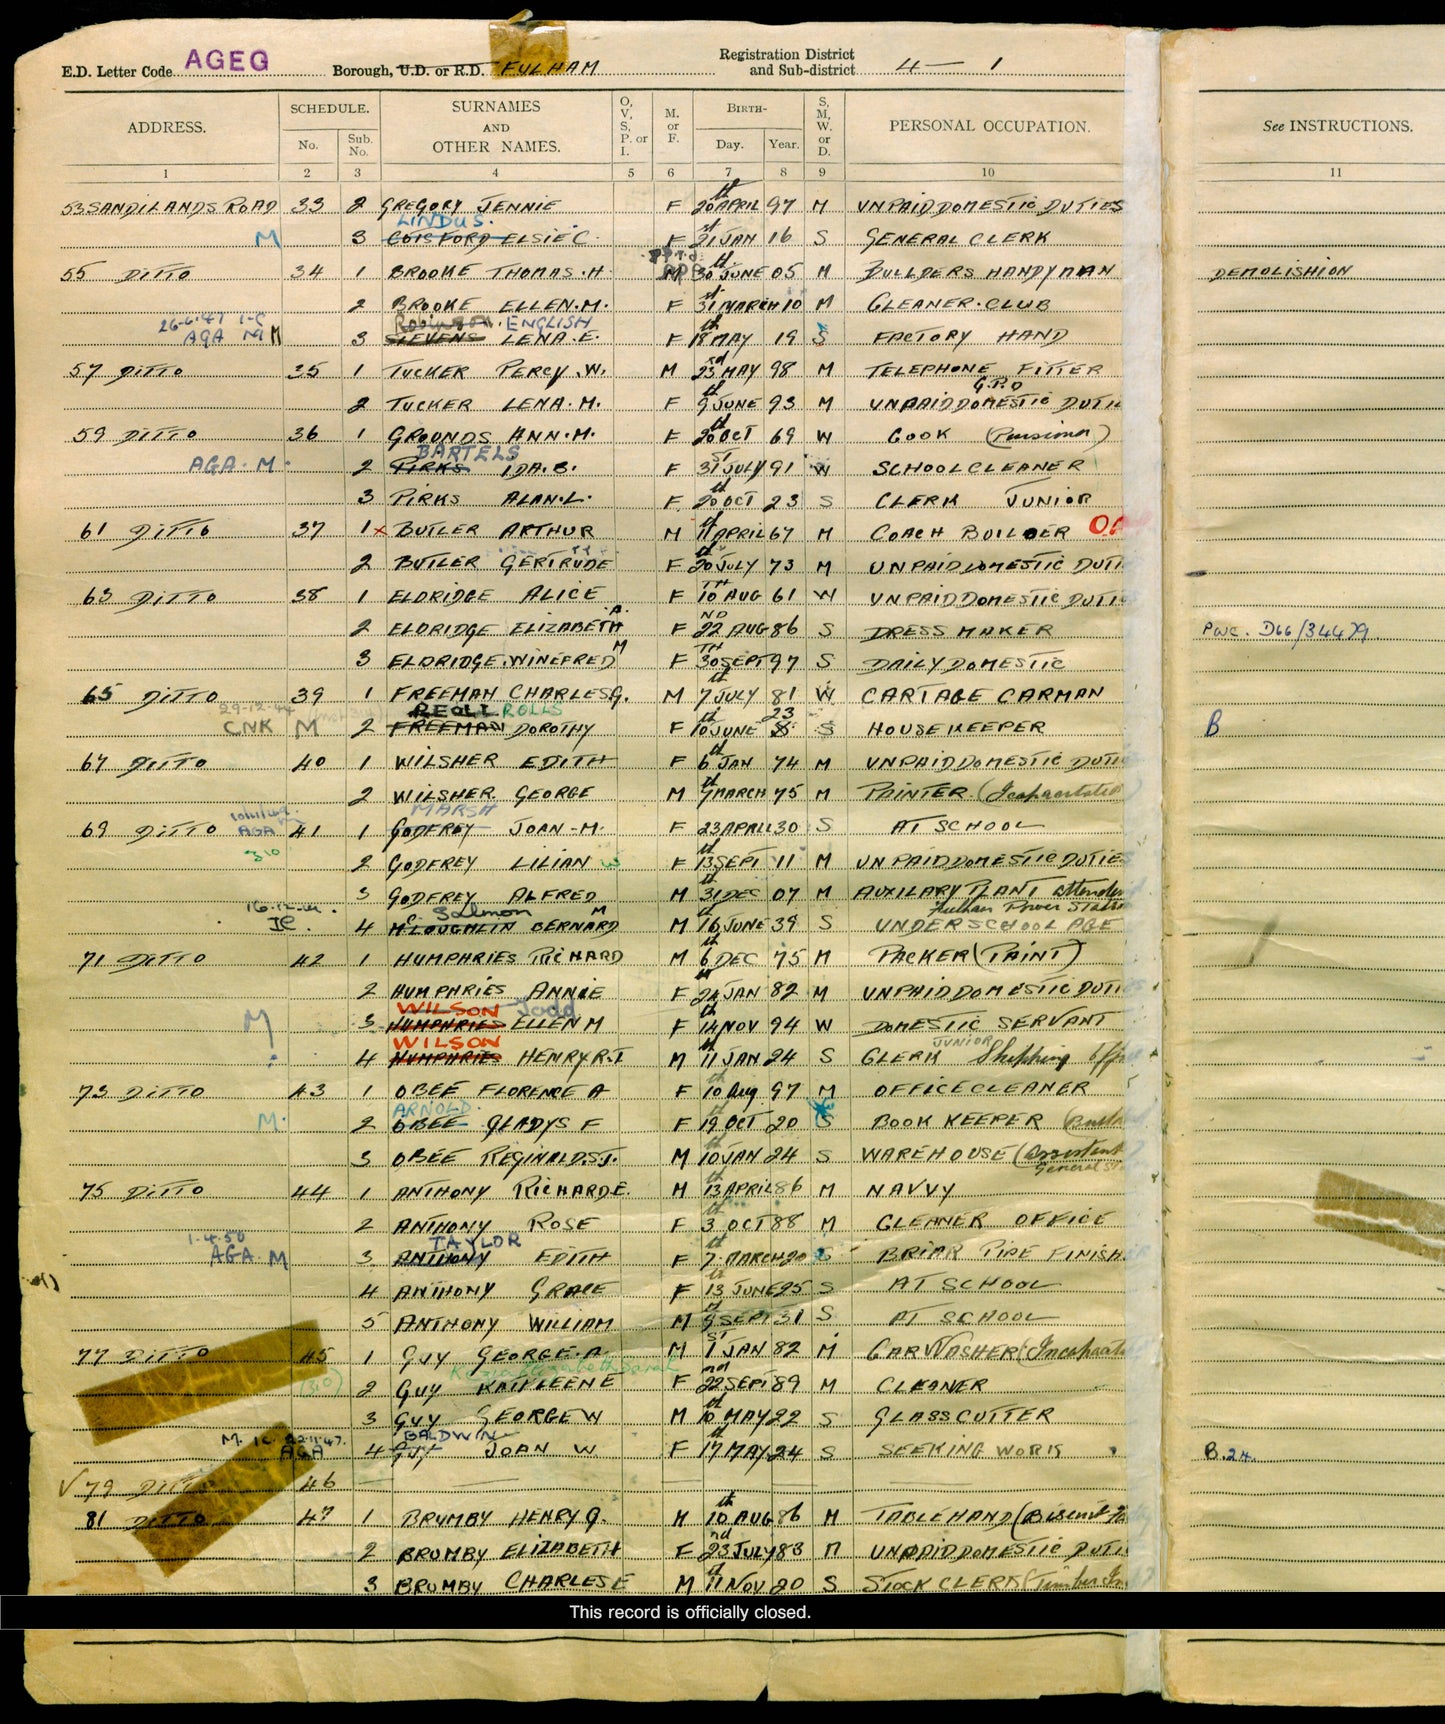 E.D. Letter Code AGEG Borough, U.D. or R.D. FULHAM Registration District and Sub-district 4 — 1
ADDRESS. SCHEDULE. No. Sub. No. SURNAMES AND OTHER NAMES. O, V, S, P. or I. M. or F. BIRTH- Day. Year. S, M, W. or D. PERSONAL OCCUPATION. See INSTRUCTIONS.
1 2 3 4 5 6 7 8 9 10 11
53 SANDILANDS ROAD 33 2 GREGORY JENNIE F 20th APRIL 97 M UNPAID DOMESTIC DUTIES
LINDUS.
M 3 COTSFORD ELSIE C. F 21st JAN 16 S GENERAL CLERK
55 DITTO 34 1 BROOKE THOMAS. H M 30th JUNE 05 M BUILDERS HANDYMAN DEMOLISHION
2 BROOKE ELLEN. M. F 31st MARCH 10 M CLEANER. CLUB
26-6-47 Robinson. ENGLISH
AGA M 3 STEVENS LENA. E. F 18th MAY 19 S FACTORY HAND
57 DITTO 35 1 TUCKER PERCY. W. M 23rd MAY 98 M TELEPHONE FITTER
G.P.O
2 TUCKER LENA. M. F 9th JUNE 93 M UNPAID DOMESTIC DUTIE
59 DITTO 36 1 GROUNDS ANN. M. F 20th OCT 69 W COOK (Pensioner)
BARTELS
AGA. M. 2 PIRKS IDA. B. F 31ST JULY 91 W SCHOOL CLEANER
3 PIRKS ALAN. L. F 20th OCT 23 S CLERK JUNIOR
61 DITTO 37 1 x BUTLER ARTHUR M 11th APRIL 67 M COACH BUILDER
2 BUTLER GERTRUDE F 20th JULY 73 M UNPAID DOMESTIC DUTI
63 DITTO 38 1 ELDRIDGE ALICE F 10TH AUG 61 W UNPAID DOMESTIC DUTIE
2 ELDRIDGE ELIZABETH A. F 22ND AUG 86 S DRESS MAKER
3 ELDRIDGE. WINEFRED M F 30TH SEPT 97 S DAILY DOMESTIC
65 DITTO 39 1 FREEMAN CHARLES G. M 7th JULY 81 W CARTAGE CARMAN
REOLL ROLLS 23
CNK M 2 FREEMAN DOROTHY F 10th JUNE S HOUSEKEEPER B
67 DITTO 40 1 WILSHER EDITH F 6th JAN 74 M UNPAID DOMESTIC DUTIE
2 WILSHER. GEORGE M 7th MARCH 75 M PAINTER
MARSH
69 DITTO AGA 41 1 GODFREY JOAN - M. F 23 APRIL 30 S AT SCHOOL
310 2 GODFREY LILIAN F 13th SEPT 11 M UNPAID DOMESTIC DUTIES
3 GODFREY ALFRED M 31 DEC 07 M AUXILARY PLANT attendan
Salmon Fulham Power Statio
4 McLOUGHLIN BERNARD M M 16 JUNE 39 S UNDER SCHOOL AGE
71 DITTO 42 1 HUMPHRIES RICHARD M 6th DEC 75 M PACKER (PAINT)
2 HUMPHRIES ANNIE F 24 JAN 82 M UNPAID DOMESTIC DUTI
WILSON Todd
M 3 HUMPHRIES ELLEN M F 14th NOV 94 W DOMESTIC SERVANT
WILSON JUNIOR
4 HUMPHRIES HENRY R. M 11th JAN 24 S CLERK Shipping Offi
73 DITTO 43 1 OBEE FLORENCE A F 10th Aug 97 M OFFICE CLEANER
ARNOLD.
M. 2 OBEE GLADYS F F 19th OCT 20 S BOOK KEEPER
3 OBEE REGINALD. S.J. M 10th JAN 24 S WAREHOUSE (assistant
General
75 DITTO 44 1 ANTHONY RICHARD E. M 13th APRIL 86 M NAVVY
2 ANTHONY ROSE F 3 OCT 88 M CLEANER OFFICE
1-4-50 TAYLOR
AGA. M 3 ANTHONY EDITH F 7th MARCH 20 S BRIAR PIPE FINISH
4 ANTHONY GRACE F 13th JUNE 25 S AT SCHOOL
5 ANTHONY WILLIAM M 9 SEPT 31 S AT SCHOOL
77 DITTO 45 1 GUY GEORGE. A. M 1ST JAN 82 M CAR WASHER (Incapacit
Elizabeth Sarah
2 GUY KATHLEEN E F 22nd SEPT 89 M CLEANER
3 GUY GEORGE W M 10th MAY 22 S GLASS CUTTER
M. 22.11.47. BALDWIN
AGA 4 GUY JOAN W F 17th MAY 24 S SEEKING WORK B.24.
√ 79 DITTO 46
81 DITTO 47 1 BRUMBY HENRY G. M 10th AUG 86 M TABLE HAND (Biscuit
2 BRUMBY ELIZABETH F 23rd JULY 83 M UNPAID DOMESTIC DUTI
3 BRUMBY CHARLES E M 11th NOV 20 S STOCK CLERK (Timber
This record is officially closed.